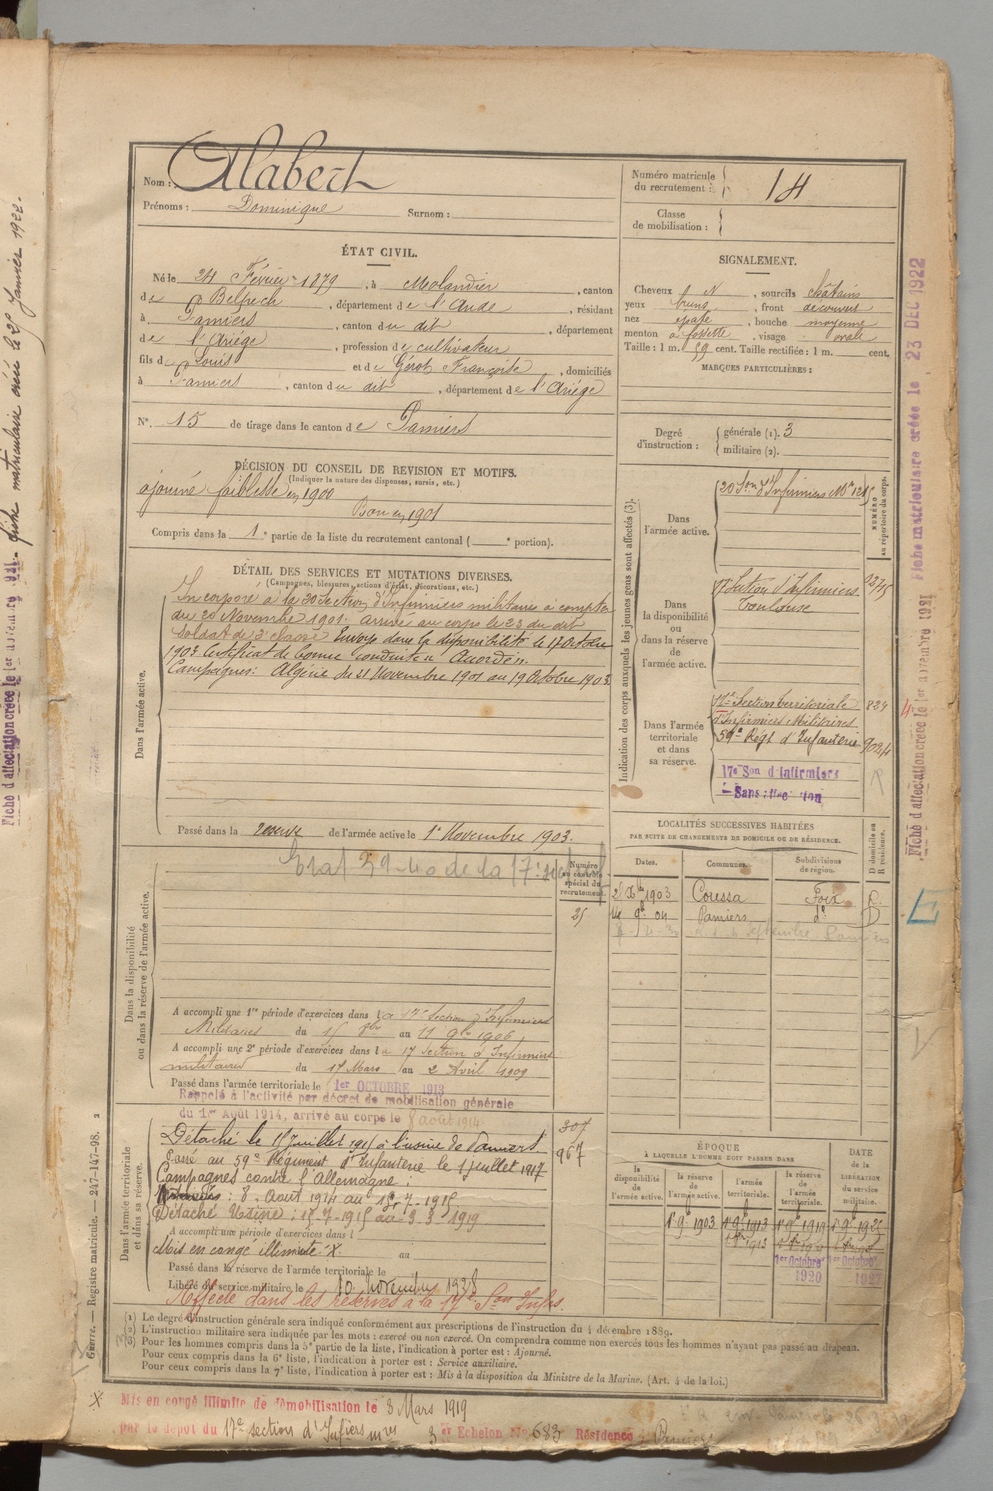 Nom : Alabert
Prénoms : Dominique Surnom :
Numéro matricule du recrutement : 14
Classe de mobilisation :
ÉTAT CIVIL.
Né le 24 Février 1879, à Molandier, canton
de Belpech, département de l'Aude, résidant
à Pamiers, canton du dit, département
de l'Ariège, profession de cultivateur
fils de Louis et de Françoise, domiciliés
à Pamiers, canton du dit, département de l'Ariège
N° 15 de tirage dans le canton de Pamiers
SIGNALEMENT.
Cheveux N, sourcils châtains
yeux bruns, front découvert
nez épaté, bouche moyenne
menton à fossette, visage ovale
Taille : 1 m. 59 cent. Taille rectifiée : 1 m. cent.
MARQUES PARTICULIÈRES :
Degré d'instruction : générale (1). 3
militaire (2).
DÉCISION DU CONSEIL DE REVISION ET MOTIFS.
(Indiquer la nature des dispenses, sursis, etc.)
ajourné faiblesse en 1900
Bon en 1901
Compris dans la 1e partie de la liste du recrutement cantonal ( e portion).
DÉTAIL DES SERVICES ET MUTATIONS DIVERSES.
(Campagnes, blessures, actions d'éclat, décorations, etc.)
Dans l'armée active.
Incorporé à la 20 Section d'Infirmiers militaires à compter
du 20 Novembre 1901. arrivé au corps le 23 du dit
Soldat de 2e classe Envoyé dans la disponibilité le 17 Octobre
1903 Certificat de bonne conduite "Accordé".
Campagnes : Algérie du 21 Novembre 1901 au 19 Octobre 1903.
Passé dans la réserve de l'armée active le 1er Novembre 1903.
Indication des corps auxquels les jeunes gens sont affectés (3).
NUMÉRO au répertoire du corps.
Dans l'armée active.
20 Son d'Infirmiers Mre
Dans la disponibilité ou dans la réserve de l'armée active.
17 Section d'Infirmiers
Toulouse
Dans l'armée territoriale et dans sa réserve.
17e Section territoriale 824
d'Infirmiers Militaires
59e Régt d'Infanterie 9024
17e Son d'Infirmiers
LOCALITÉS SUCCESSIVES HABITÉES
PAR SUITE DE CHANGEMENTS DE DOMICILE OU DE RÉSIDENCE.
D domicile ou R résidence.
Dates. Communes. Subdivisions de région.
1903 Coussa Foix
04 Pamiers do D
Dans la disponibilité ou dans la réserve de l'armée active.
Numéro au contrôle spécial du recrutement.
25
Etat 39-40 de la 17e
A accompli une 1re période d'exercices dans la 17e Section d'Infirmiers
Militaires du 15 8bre au 11 9bre 1906
A accompli une 2e période d'exercices dans la 17 Section d'Infirmiers
militaires du 17 Mars au 2 Avril 1909
Passé dans l'armée territoriale le 1er OCTOBRE 1913
Rappelé à l'activité par décret de mobilisation générale
du 1er Août 1914, arrivé au corps le 8 août 1914
Dans l'armée territoriale et dans sa réserve.
307
967
Détaché le 15 Juillet 1915 à l'usine de Pamiers
Passé au 59e Régiment d'Infanterie le 1 juillet 1917
Campagnes contre l'Allemagne :
: 8. Août 1914 au 15-7-1915
Détaché Usine : 15-7-1915 au 3 3 1919
A accompli une période d'exercices dans l
Mis en congé illimité X au
Passé dans la réserve de l'armée territoriale le
Libéré du service militaire le 10 Novembre 1928
Affecté dans les réserves à la 17e Son Infres.
ÉPOQUE
À LAQUELLE L'HOMME DOIT PASSER DANS
la disponibilité de l'armée active.
la réserve de l'armée active.
l'armée territoriale.
la réserve de l'armée territoriale.
DATE de la LIBÉRATION du service militaire.
1er 9bre 1903 1er 9bre 1913 1er 9bre 1919
1er Octobre 1920 1er Octobre
(1) Le degré d'instruction générale sera indiqué conformément aux prescriptions de l'instruction du 4 décembre 1889.
(2) L'instruction militaire sera indiquée par les mots : exercé ou non exercé. On comprendra comme non exercés tous les hommes n'ayant pas passé au drapeau.
(3) Pour les hommes compris dans la 5e partie de la liste, l'indication à porter est : Ajourné.
Pour ceux compris dans la 6e liste, l'indication à porter est : Service auxiliaire.
Pour ceux compris dans la 7e liste, l'indication à porter est : Mis à la disposition du Ministre de la Marine. (Art. 4 de la loi.)
X Mis en congé illimité de démobilisation le 3 Mars 1919
par le dépôt du 17e section d'Infiers mres 3 er Echelon No 683 Résidence : Pamiers
Guerre. — Registre matricule. — 247-147-98. 2
Fiche matriculaire créée le 23 DEC 1922
Fiche d'affectation créée le 1er novembre 1921
Fiche d'affectation créée le 1er novembre 1921. fiche matriculaire créée le 25 Janvier 1922.
E